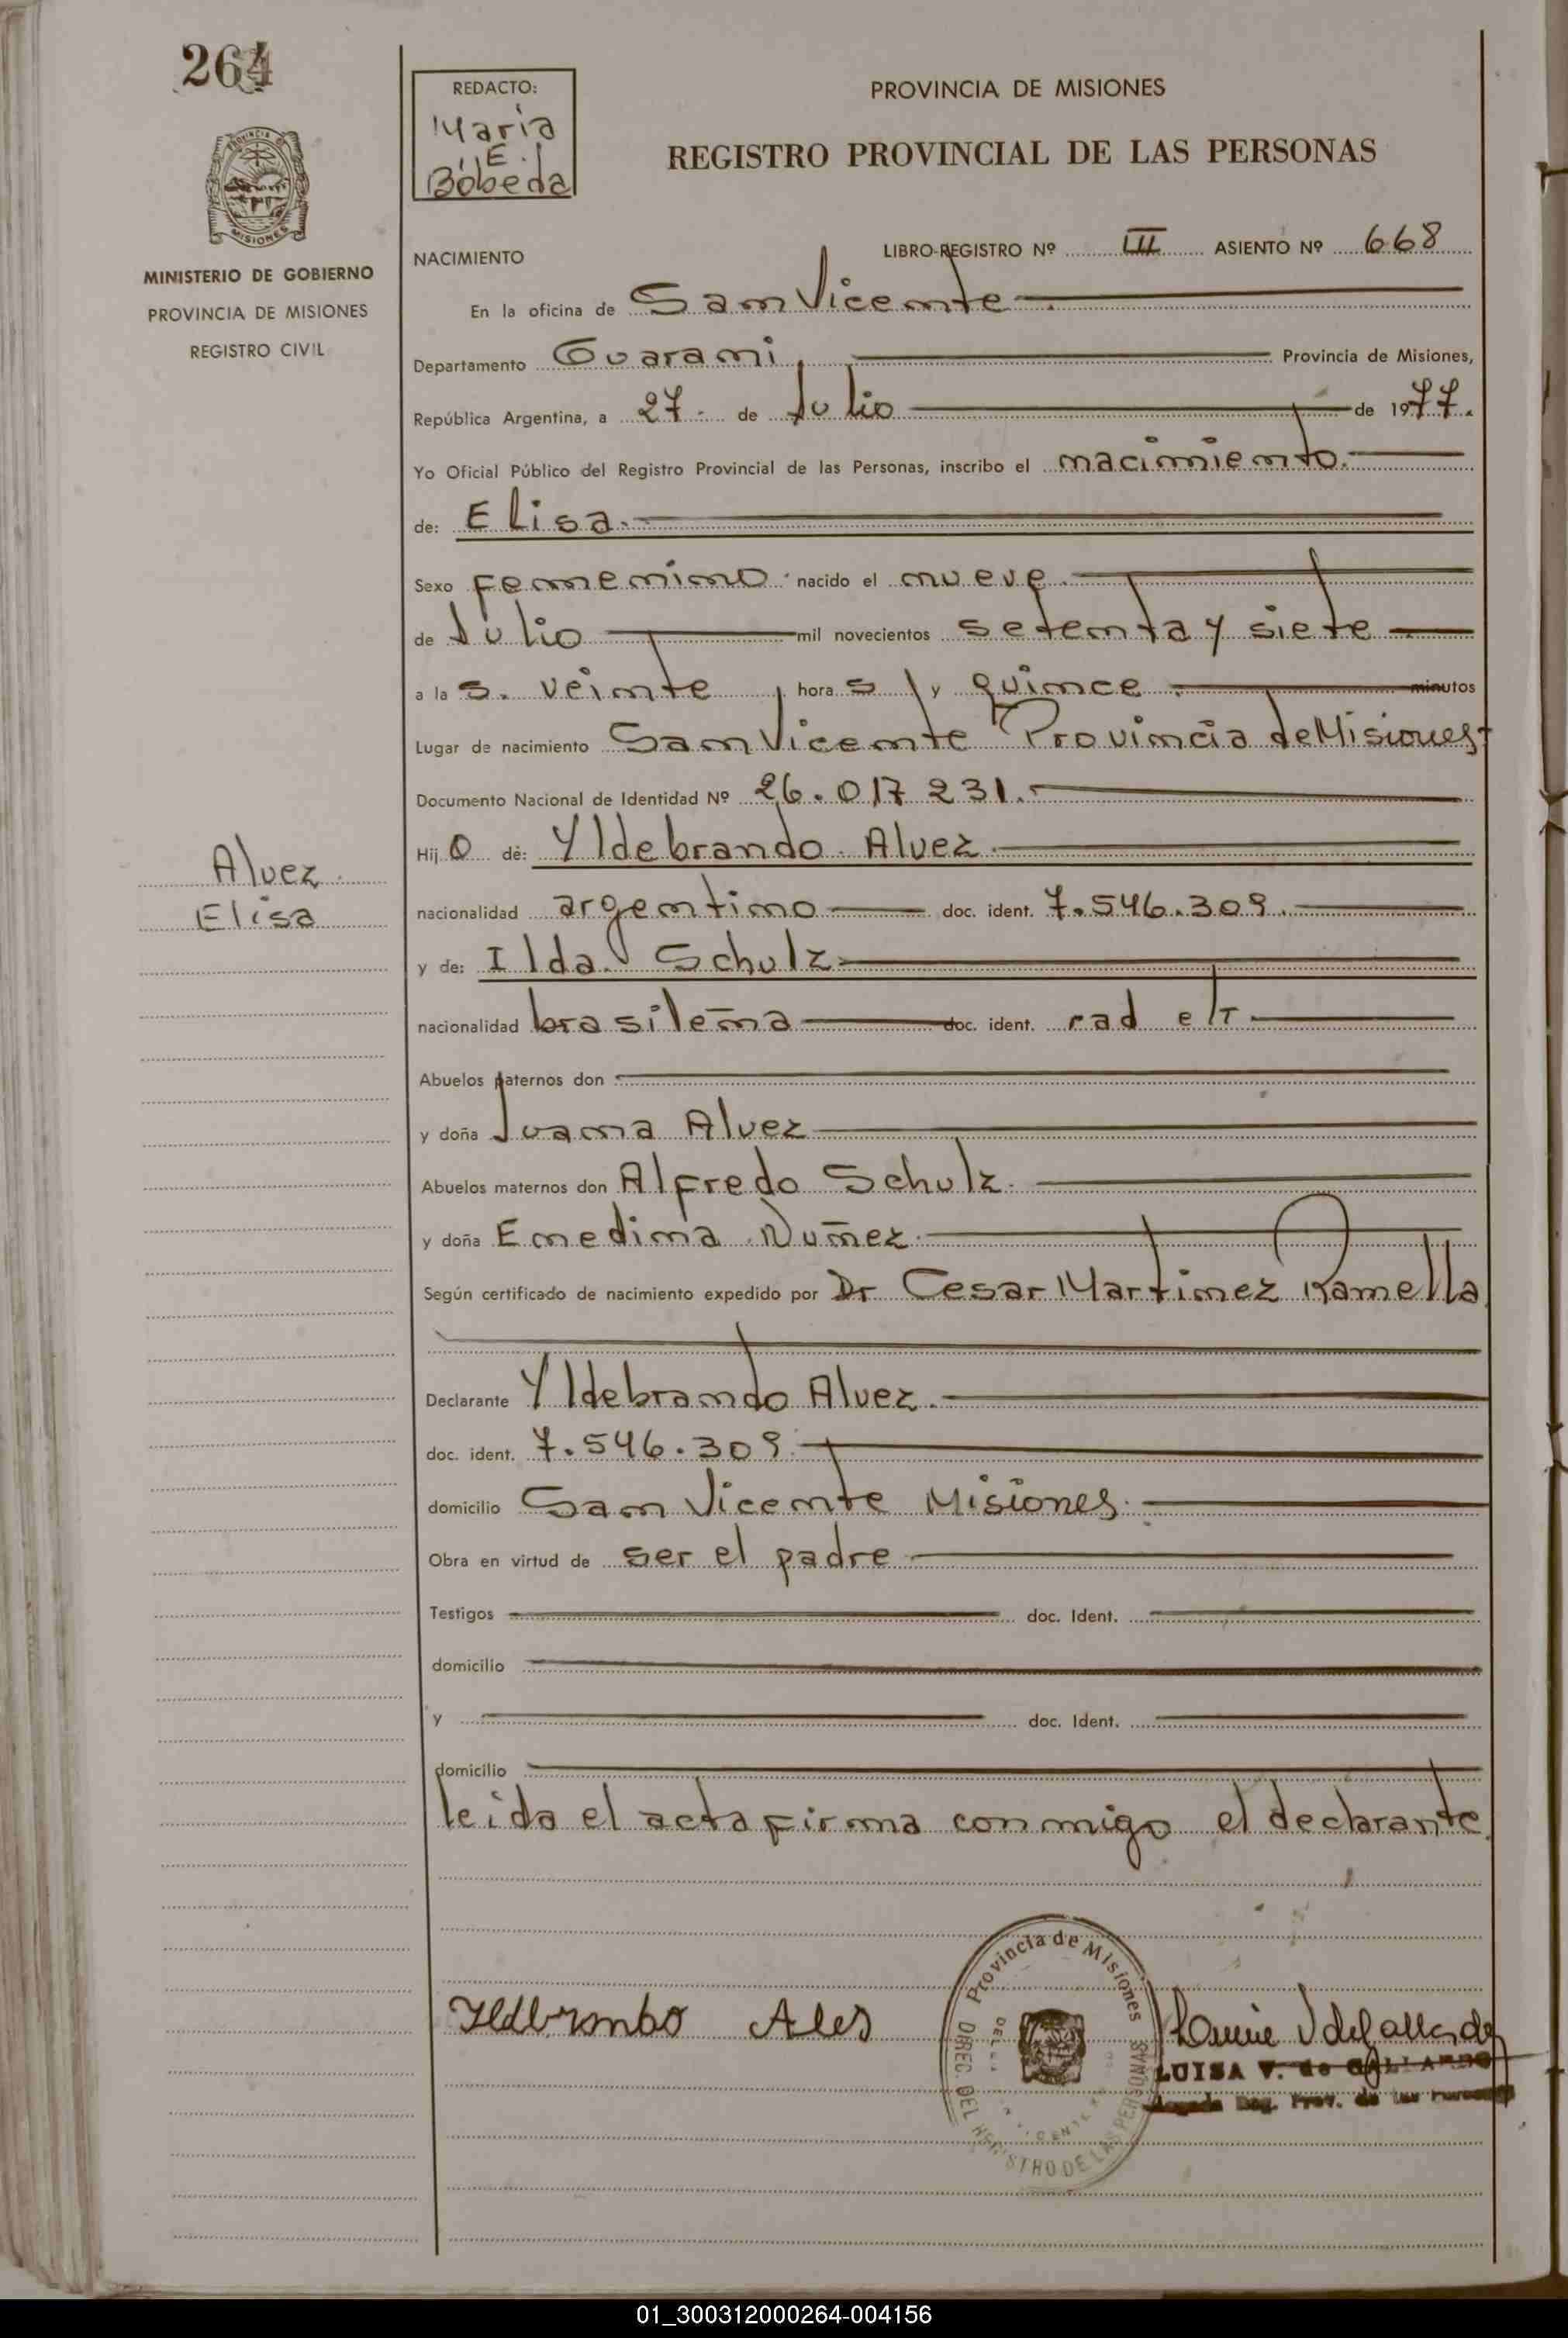 264
REDACTO:
Maria
E.
Bóbeda
PROVINCIA DE MISIONES
REGISTRO PROVINCIAL DE LAS PERSONAS
PROVINCIA DE
MISIONES
MINISTERIO DE GOBIERNO
PROVINCIA DE MISIONES
REGISTRO CIVIL
NACIMIENTO
LIBRO-REGISTRO Nº III ASIENTO Nº 668
En la oficina de San Vicente
Departamento Guarani Provincia de Misiones,
República Argentina, a 27 de Julio de 1977.
Yo Oficial Público del Registro Provincial de las Personas, inscribo el nacimiento.
de: Elisa.
Sexo femenino nacido el nueve
de Julio mil novecientos setenta y siete
a la s. veinte hora s y quince minutos
Lugar de nacimiento San Vicente Provincia de Misiones
Documento Nacional de Identidad Nº 26.017 231.
Hij o de: Yldebrando Alvez
nacionalidad argentino doc. ident. 7.546.309.
y de: Ilda Schulz
nacionalidad brasileña doc. ident. rad e/T
Abuelos paternos don
y doña Juana Alvez
Abuelos maternos don Alfredo Schulz
y doña Enedina Nuñez
Según certificado de nacimiento expedido por Dr Cesar Martinez Ramella
Declarante Yldebrando Alvez.
doc. ident. 7.546.309
domicilio San Vicente Misiones
Obra en virtud de ser el padre
Testigos doc. Ident.
domicilio
y doc. Ident.
domicilio
leida el acta firma conmigo el declarante
Alvez
Elisa
Provincia de Misiones
DIREC. DEL REGISTRO DE LAS PERSONAS
LUISA V. de GALLARDO
Reg. Prov. de las Personas
01_300312000264-004156